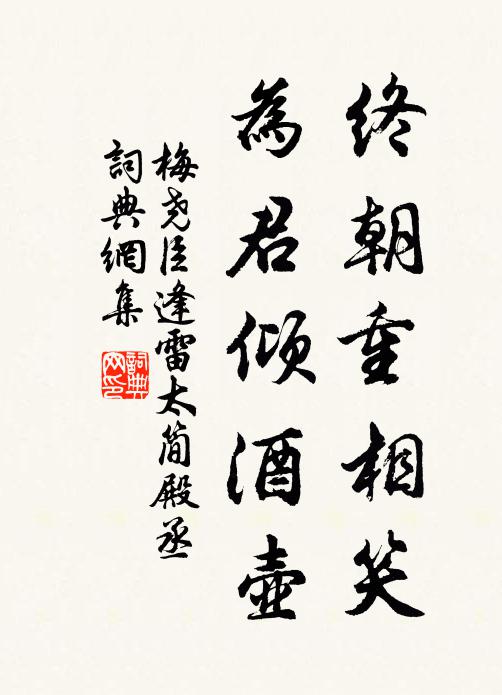 終朝重相笑
為君傾酒壺
梅尧臣逢雷太簡殿丞
詞典網集
詞典網印